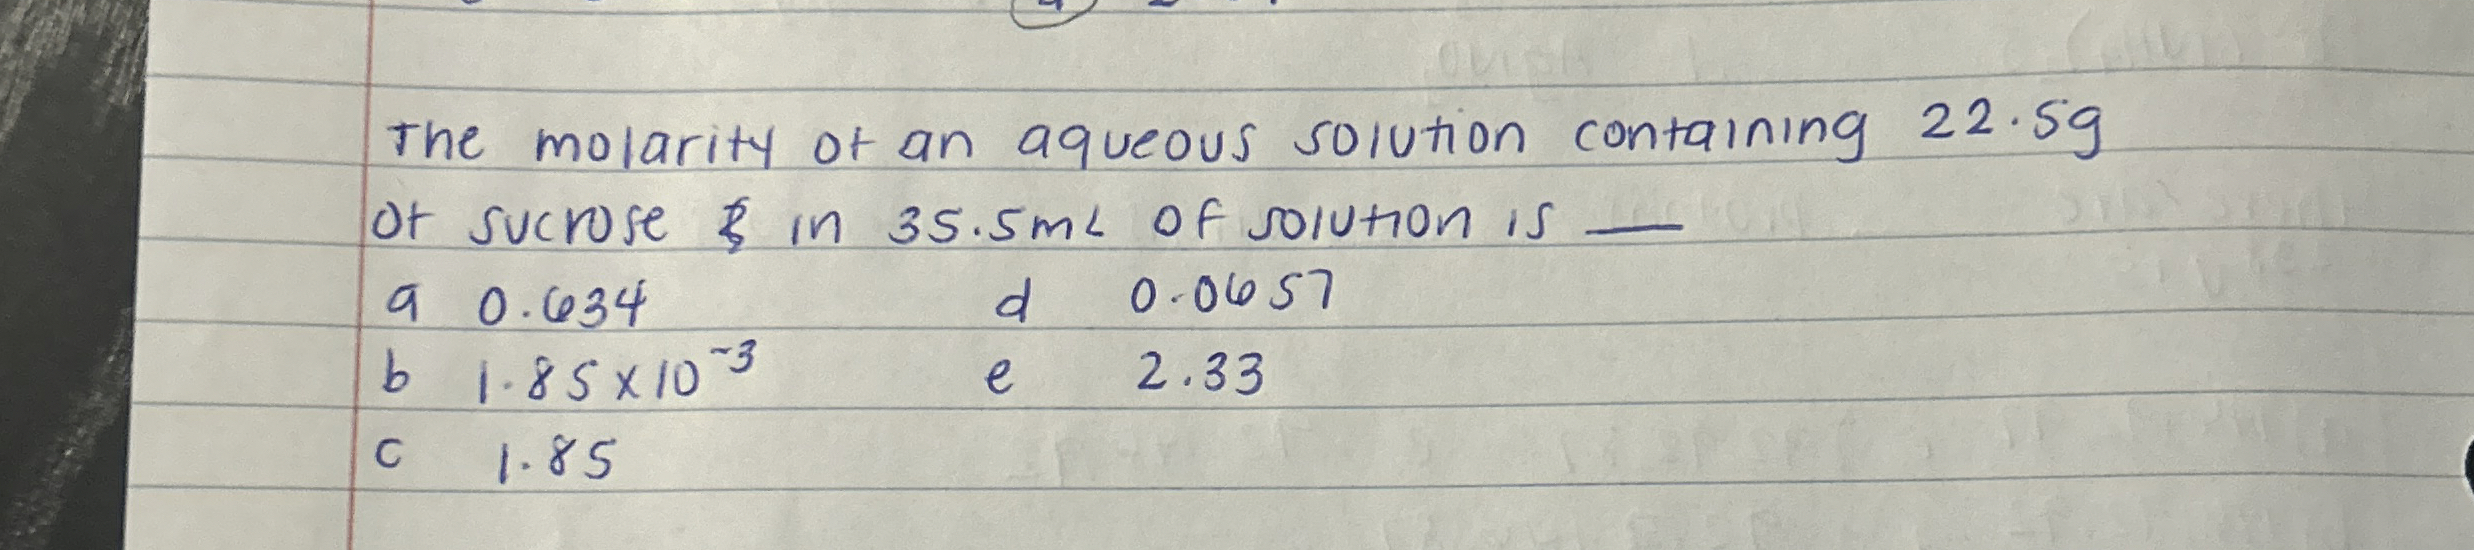 The molarity of an aqueous solution containing 22.5g
of sucrose in 35.5mL of solution is __
a 0.634 d 0.0657
b 1.85 x 10⁻³ e 2.33
c 1.85